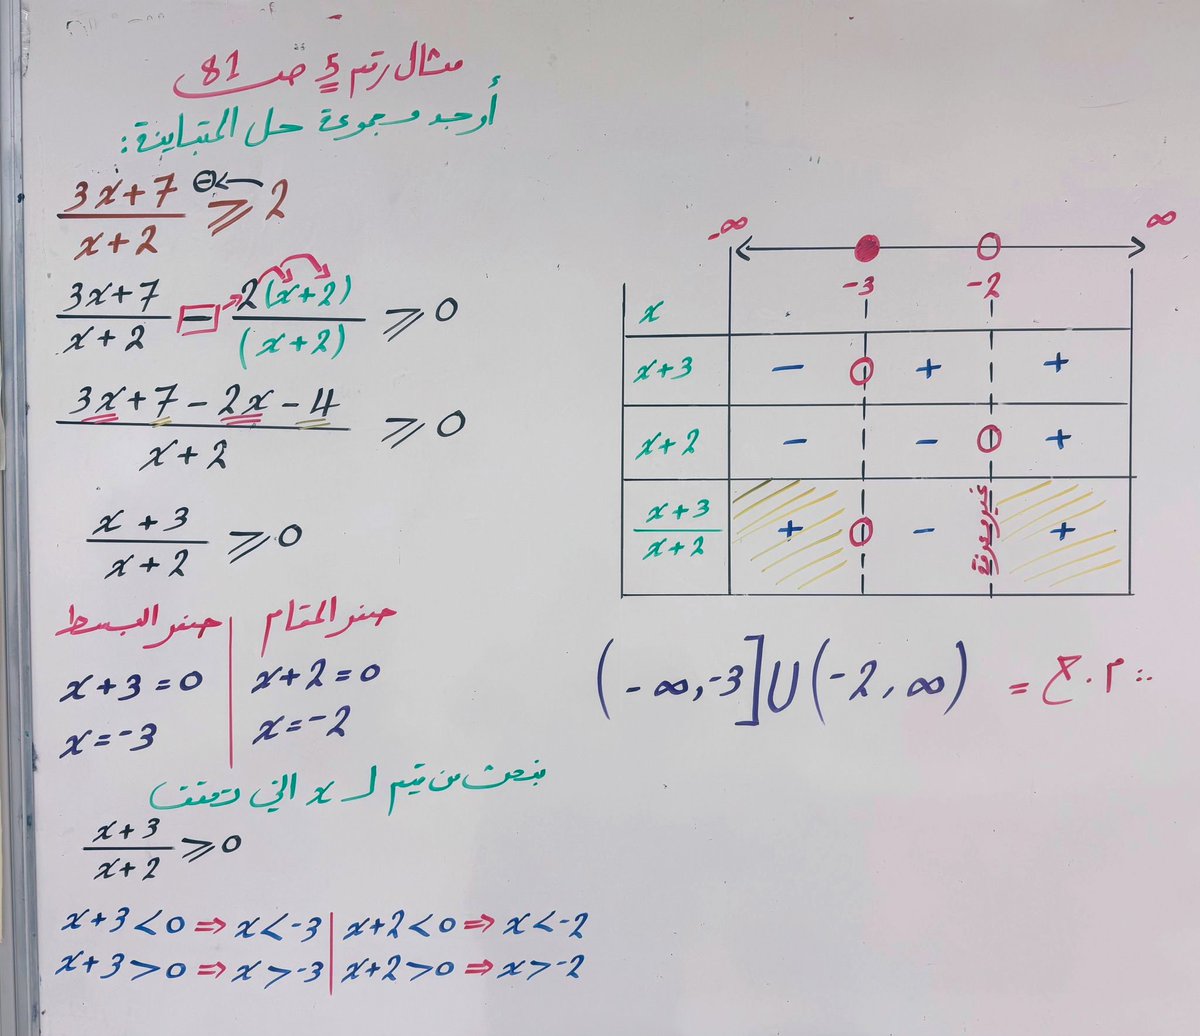 مثال رقم 5 ص 81
أوجد مجموعة حل المتباينة :
3x+7 / x+2 ≥ 2
3x+7 / x+2 − 2(x+2) / (x+2) ≥ 0
3x+7−2x−4 / x+2 ≥ 0
x+3 / x+2 ≥ 0
صفر البسط | صفر المقام
x+3=0 | x+2=0
x=-3 | x=-2
نبحث عن قيم لـ x التي تحقق
x+3 / x+2 ≥ 0
x+3<0 ⇒ x<-3 | x+2<0 ⇒ x<-2
x+3>0 ⇒ x>-3 | x+2>0 ⇒ x>-2
-∞ ∞
x -3 -2
x+3 − 0 + +
x+2 − − 0 +
x+3 / x+2 + 0 − غير معرفة +
∴ م.ح = (-∞,-3]∪(-2,∞)